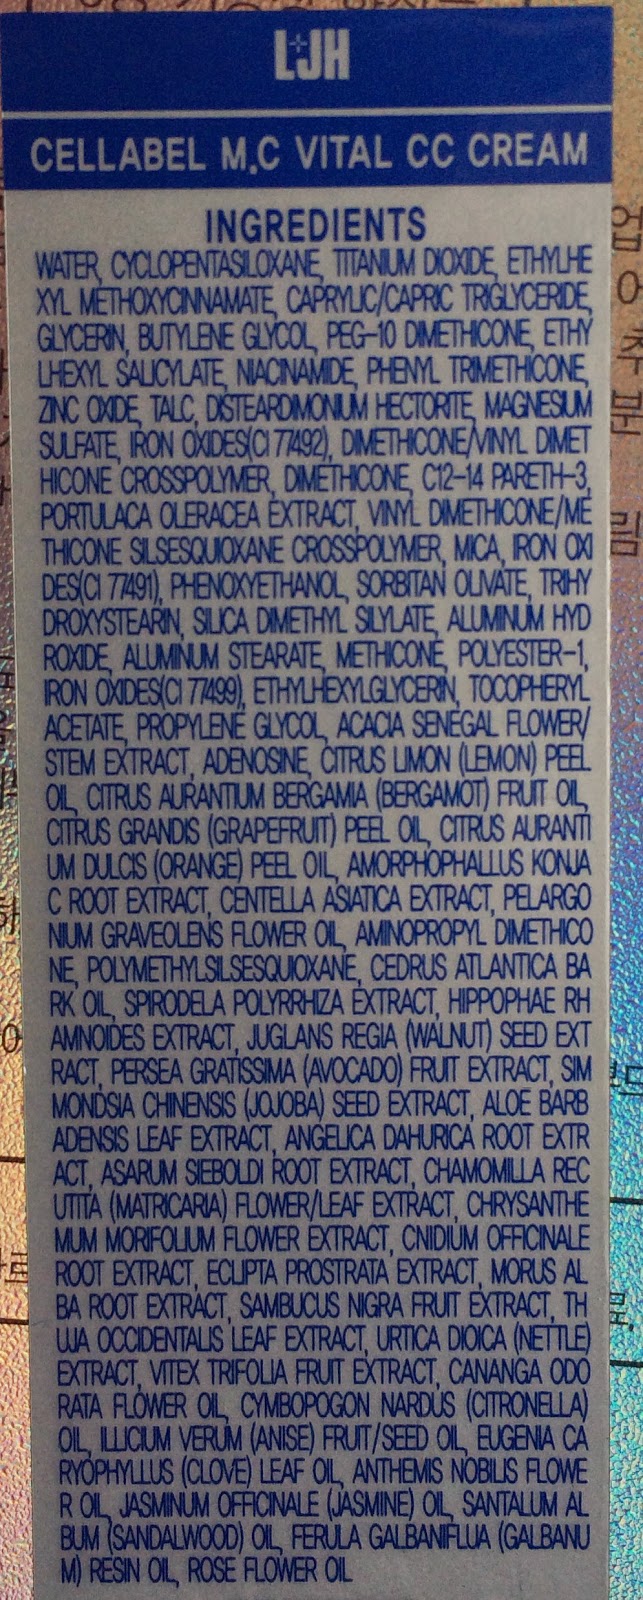 LJH
CELLABEL M.C VITAL CC CREAM
INGREDIENTS
WATER, CYCLOPENTASILOXANE, TITANIUM DIOXIDE, ETHYLHE
XYL METHOXYCINNAMATE, CAPRYLIC/CAPRIC TRIGLYCERIDE,
GLYCERIN, BUTYLENE GLYCOL, PEG-10 DIMETHICONE, ETHY
LHEXYL SALICYLATE, NIACINAMIDE, PHENYL TRIMETHICONE,
ZINC OXIDE, TALC, DISTEARDMONIUM HECTORITE, MAGNESIUM
SULFATE, IRON OXIDES(CI 77492), DIMETHICONE/VINYL DIMET
HICONE CROSSPOLYMER, DIMETHICONE, C12-14 PARETH-3,
PORTULACA OLERACEA EXTRACT, VINYL DIMETHICONE/ME
THICONE SILSESQUIOXANE CROSSPOLYMER, MICA, IRON OXI
DES(CI 77491), PHENOXYETHANOL, SORBITAN OLIVATE, TRIHY
DROXYSTEARIN, SILICA DIMETHYL SILYLATE, ALUMINUM HYD
ROXIDE, ALUMINUM STEARATE, METHICONE, POLYESTER-1,
IRON OXIDES(CI 77499), ETHYLHEXYLGLYCERIN, TOCOPHERYL
ACETATE, PROPYLENE GLYCOL, ACACIA SENEGAL FLOWER/
STEM EXTRACT, ADENOSINE, CITRUS LIMON (LEMON) PEEL
OIL, CITRUS AURANTIUM BERGAMIA (BERGAMOT) FRUIT OIL,
CITRUS GRANDIS (GRAPEFRUIT) PEEL OIL, CITRUS AURANTI
UM DULCIS (ORANGE) PEEL OIL, AMORPHOPHALLUS KONJA
C ROOT EXTRACT, CENTELLA ASIATICA EXTRACT, PELARGO
NIUM GRAVEOLENS FLOWER OIL, AMINOPROPYL DIMETHICO
NE, POLYMETHYLSILSESQUIOXANE, CEDRUS ATLANTICA BA
RK OIL, SPIRODELA POLYRRHIZA EXTRACT, HIPPOPHAE RH
AMNOIDES EXTRACT, JUGLANS REGIA (WALNUT) SEED EXT
RACT, PERSEA GRATISSIMA (AVOCADO) FRUIT EXTRACT, SIM
MONDSIA CHINENSIS (JOJOBA) SEED EXTRACT, ALOE BARB
ADENSIS LEAF EXTRACT, ANGELICA DAHURICA ROOT EXTR
ACT, ASARUM SIEBOLDI ROOT EXTRACT, CHAMOMILLA REC
UTITA (MATRICARIA) FLOWER/LEAF EXTRACT, CHRYSANTHE
MUM MORIFOLIUM FLOWER EXTRACT, CNIDIUM OFFICINALE
ROOT EXTRACT, ECLIPTA PROSTRATA EXTRACT, MORUS AL
BA ROOT EXTRACT, SAMBUCUS NIGRA FRUIT EXTRACT, TH
UJA OCCIDENTALIS LEAF EXTRACT, URTICA DIOICA (NETTLE)
EXTRACT, VITEX TRIFOLIA FRUIT EXTRACT, CANANGA ODO
RATA FLOWER OIL, CYMBOPOGON NARDUS (CITRONELLA)
OIL, ILLICIUM VERUM (ANISE) FRUIT/SEED OIL, EUGENIA CA
RYOPHYLLUS (CLOVE) LEAF OIL, ANTHEMIS NOBILIS FLOWE
R OIL, JASMINUM OFFICINALE (JASMINE) OIL, SANTALUM AL
BUM (SANDALWOOD) OIL, FERULA GALBANIFLUA (GALBANU
M) RESIN OIL, ROSE FLOWER OIL